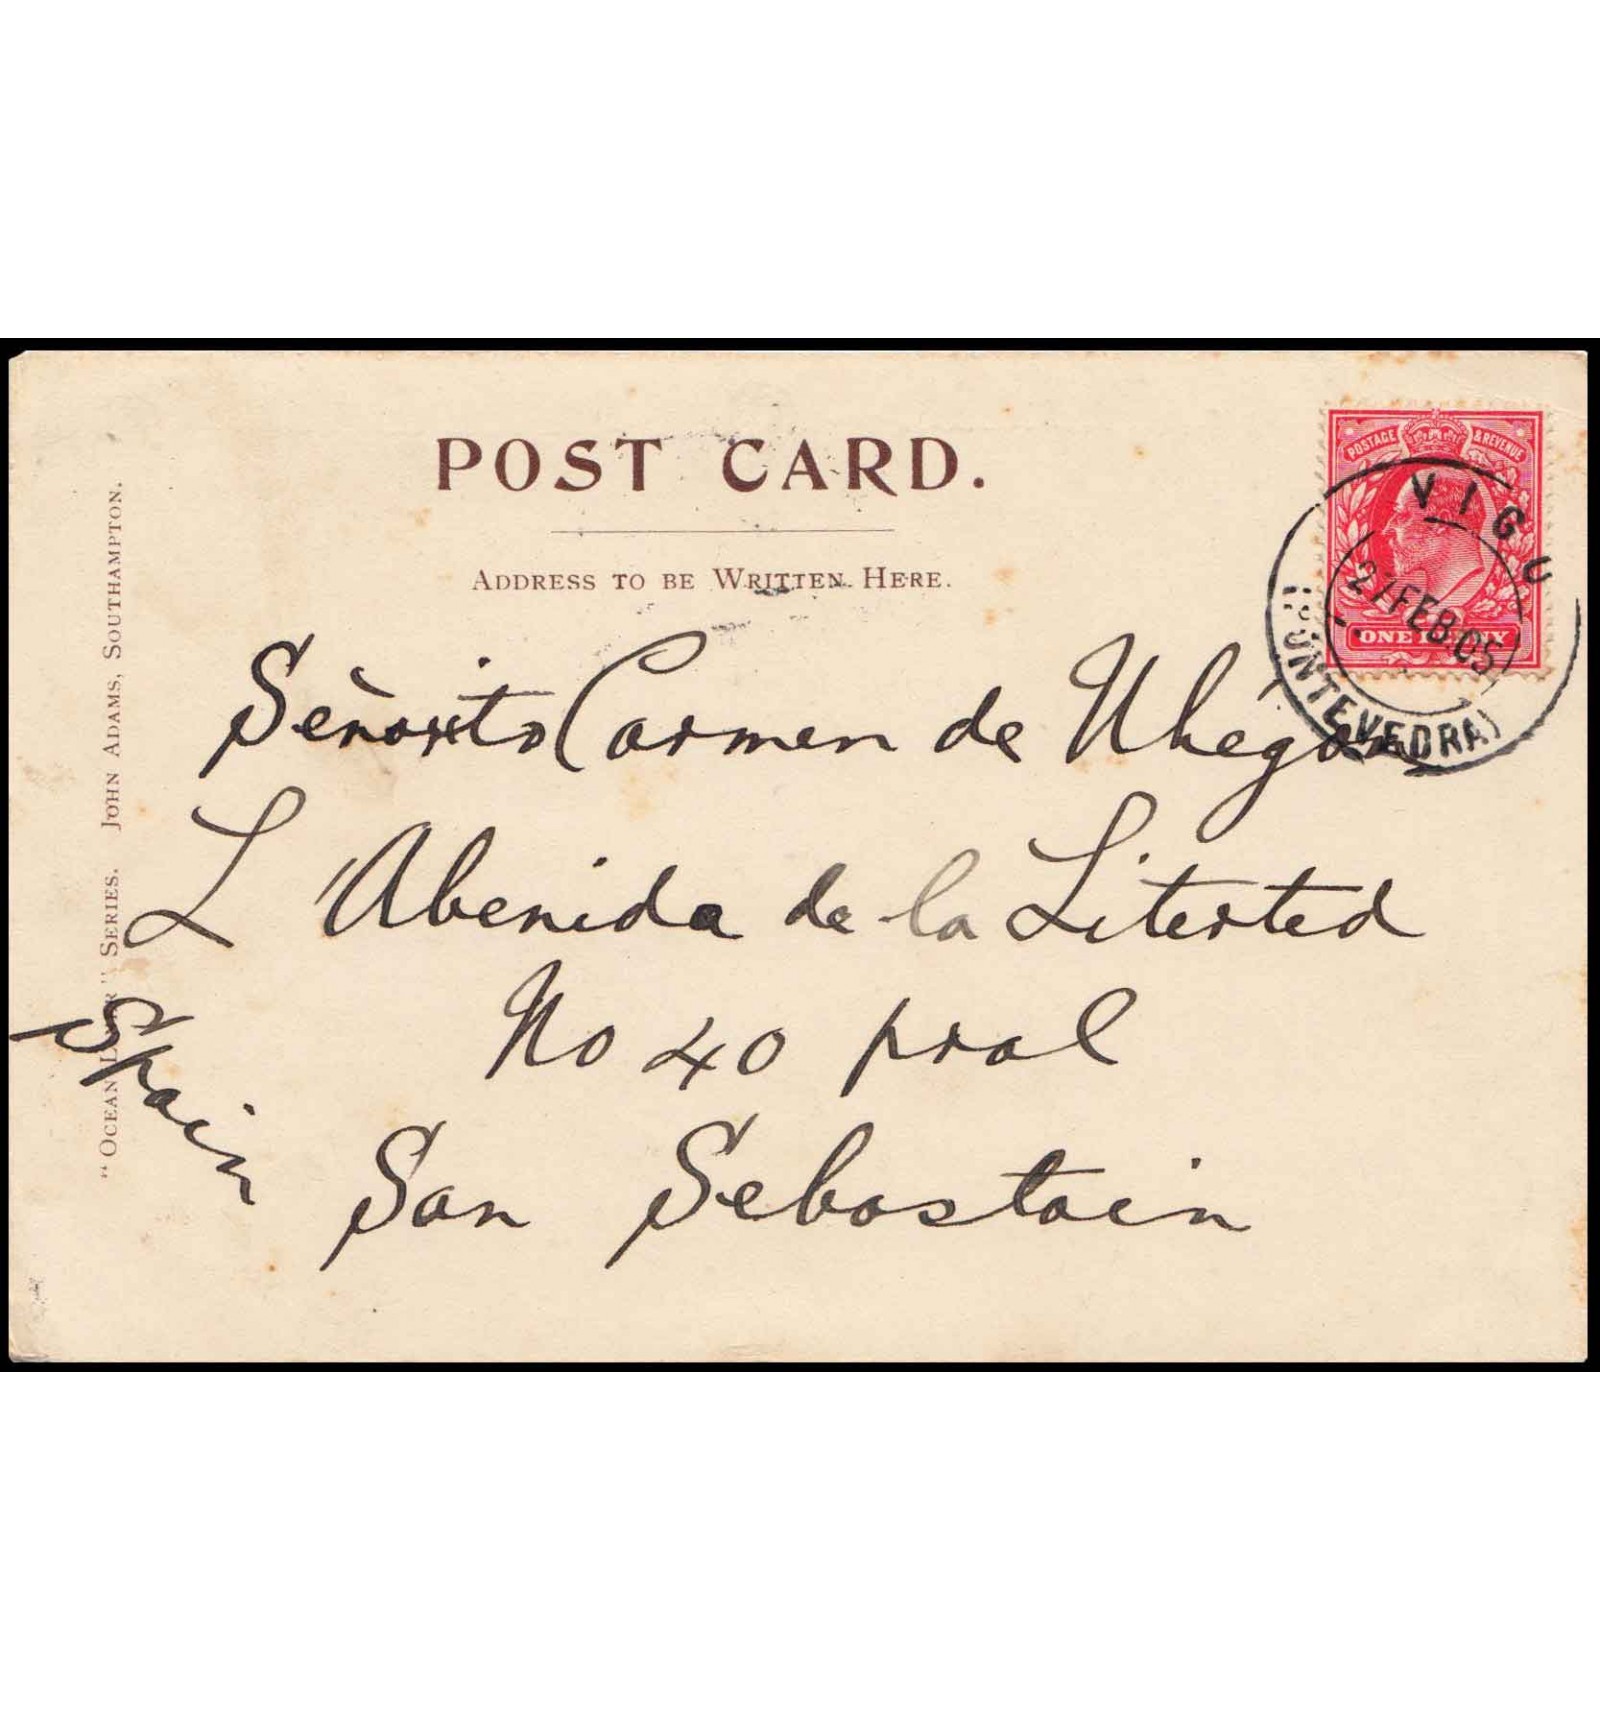 POST CARD.
ADDRESS TO BE WRITTEN HERE.
POSTAGE & REVENUE
ONE PENNY
VIGO
27 FEB.05
(PONTEVEDRA)
Señorita Carmen de
L Abenida de la Literted
No 40 pral
San Sebastain
Spain
"OCEAN LINER" SERIES. JOHN ADAMS, SOUTHAMPTON.